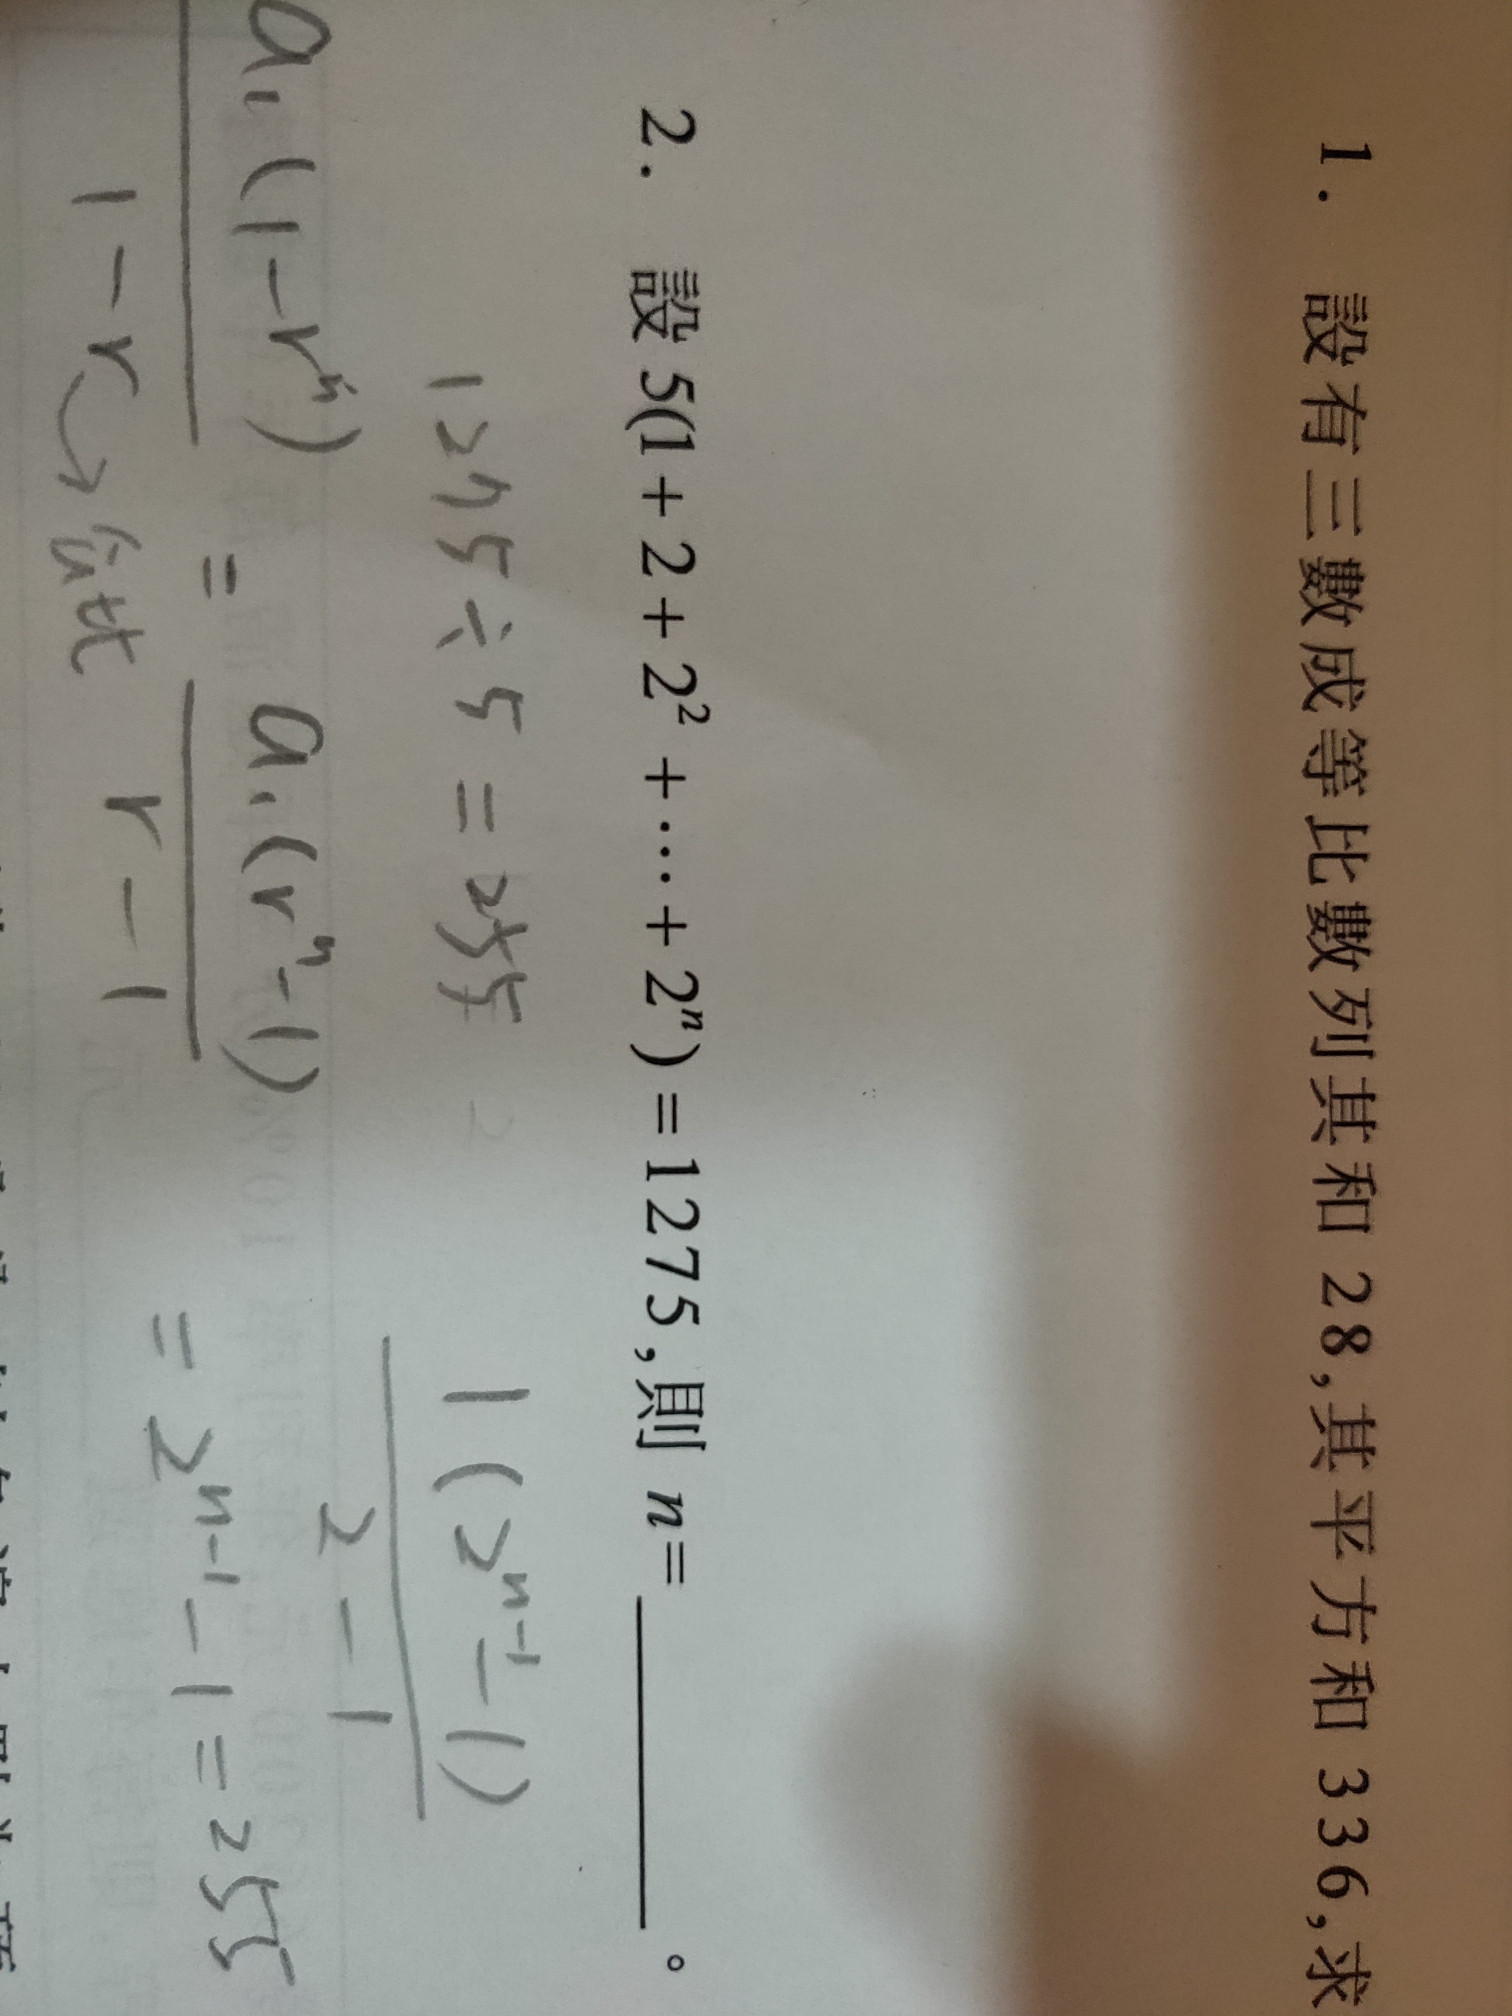 1. 設有三數成等比數列其和 28,其平方和 336,求
2. 設 5(1+2+2²+⋯+2ⁿ)=1275,則 n=________。
1275÷5=255
1(2ⁿ⁻¹-1)
2-1
a₁(1-rⁿ)
1-r
=
a₁(rⁿ-1)
r-1
=2ⁿ⁻¹-1=255
→公比